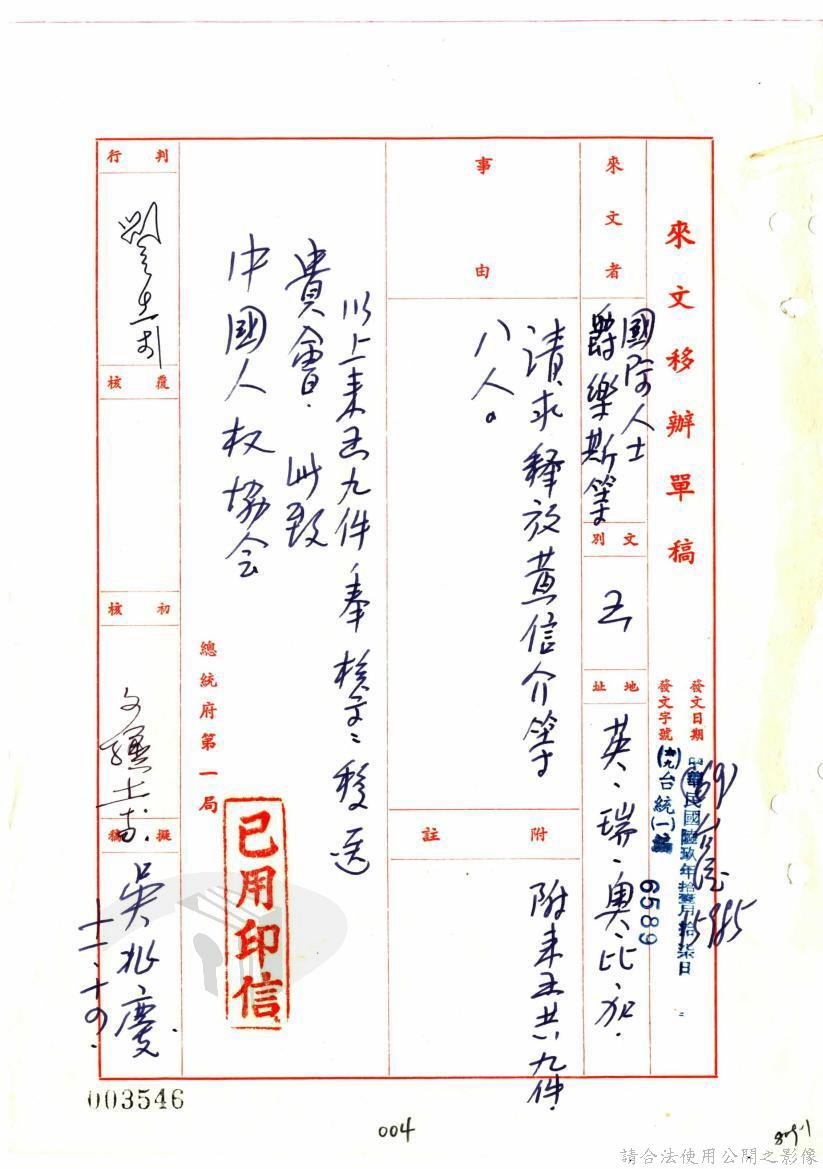 來文移辦單稿
發文日期
中華民國陸玖年拾壹月拾柒日
發文字號
(六九)台統(一) 6589
(69)
15985
來文者
國際人士
爵樂斯等
文別
地址
英、瑞、奧、比、加.
事由
請求釋放黃信介等
八人。
附註
附來函共九件.
以上來函九件,奉核交:移送
貴會.此致
中國人权協会
總統府第一局
已用印信
判行
覆核
初核
擬稿
吳兆慶
十一、十四.
003546
004
請合法使用公開之影像